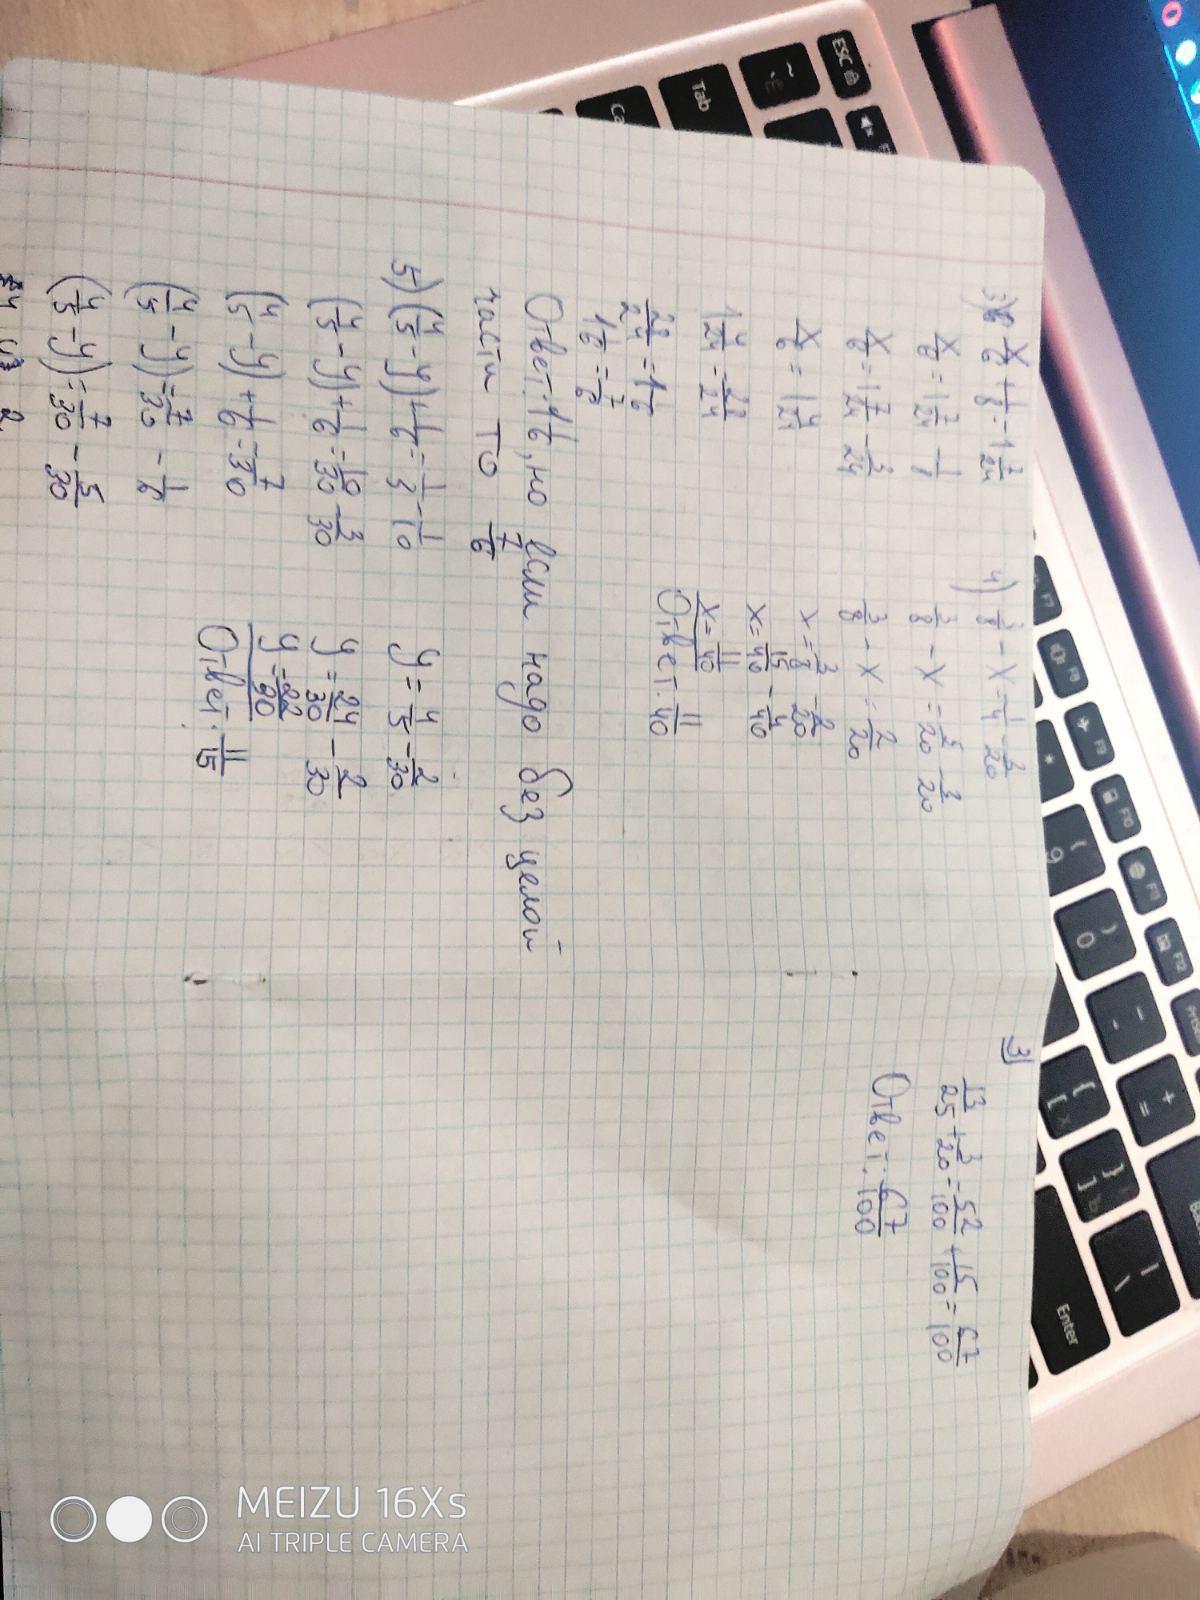 x/6 + 1/8 = 1 7/24
x/6 = 1 7/24 - 1/8
x/6 = 1 7/24 - 3/24
x/6 = 1 4/24
1 4/24 = 28/24
28/24 = 1 1/6
1 1/6 = 7/6
Ответ: 1 1/6, но если надо без целой
части то 7/6
4) 3/8 - x = 1/4 - 3/20
3/8 - x = 5/20 - 3/20
3/8 - x = 2/20
x = 3/8 - 2/20
x = 15/40 - 4/40
x = 11/40
Ответ: 11/40
5) (4/5 - y) + 1/6 = 1/3 - 1/10
(4/5 - y) + 1/6 = 10/30 - 3/30
(4/5 - y) + 1/6 = 7/30
(4/5 - y) = 7/30 - 1/6
(4/5 - y) = 7/30 - 5/30
y = 4/5 - 2/30
y = 24/30 - 2/30
y = 22/30
Ответ: 11/15
3)
13/25 + 3/20 = 52/100 + 15/100 = 67/100
Ответ: 67/100
ESC
Tab
F7
F8
F9
F10
F11
F12
Enter
MEIZU 16Xs
AI TRIPLE CAMERA